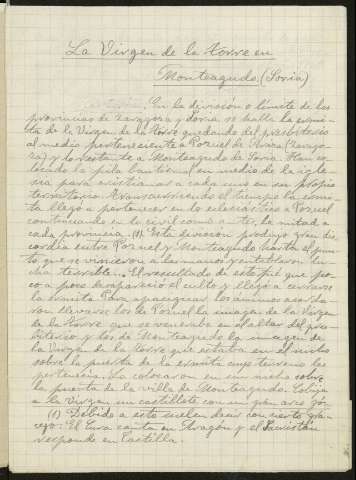 La Virgen de la Torre en
Monteagudo (Soria)
En la división o límite de las
provincias de Zaragoza y Soria se halla la ermi-
ta de la Virgen de la Torre quedando del presbiterio
al medio perteneciente a Pozuel de Ariza (Zarago-
za) y lo restante a Monteagudo de Soria. Han co-
locado la pila bautismal en medio de la igle-
sia para cristianar a cada uno en su propio
territorio. Transcurriendo el tiempo la ermi-
ta llegó a pertenecer en lo eclesiástico a Pozuel
continuando en lo civil como antes, la mitad a
cada provincia. (1) Esta división produjo gran dis-
cordia entre Pozuel y Monteagudo hasta el pun-
to que se vinieron a las manos y entablaron lu-
cha terrible. El resultado de esto fué que po-
co a poco desapareció el culto y llegó a cerrarse
la ermita. Para apaciguar los ánimos acorda-
ron llevarse los de Pozuel la imagen de la Virgen
de la Torre que se veneraba en el altar del pres-
biterio y los de Monteagudo la imagen de
la Virgen de la Torre que estaba en el nicho
sobre la puerta de la ermita cuyo terreno les
pertenecía. La colocaron en un nicho sobre
la puerta de la villa de Monteagudo. Cobija
a la Virgen un castillete con un gran arco gó-
(1) Debido a esto suelen decir con cierto gra-
cejo: El Cura canta en Aragón y el Sacristán
responde en Castilla.